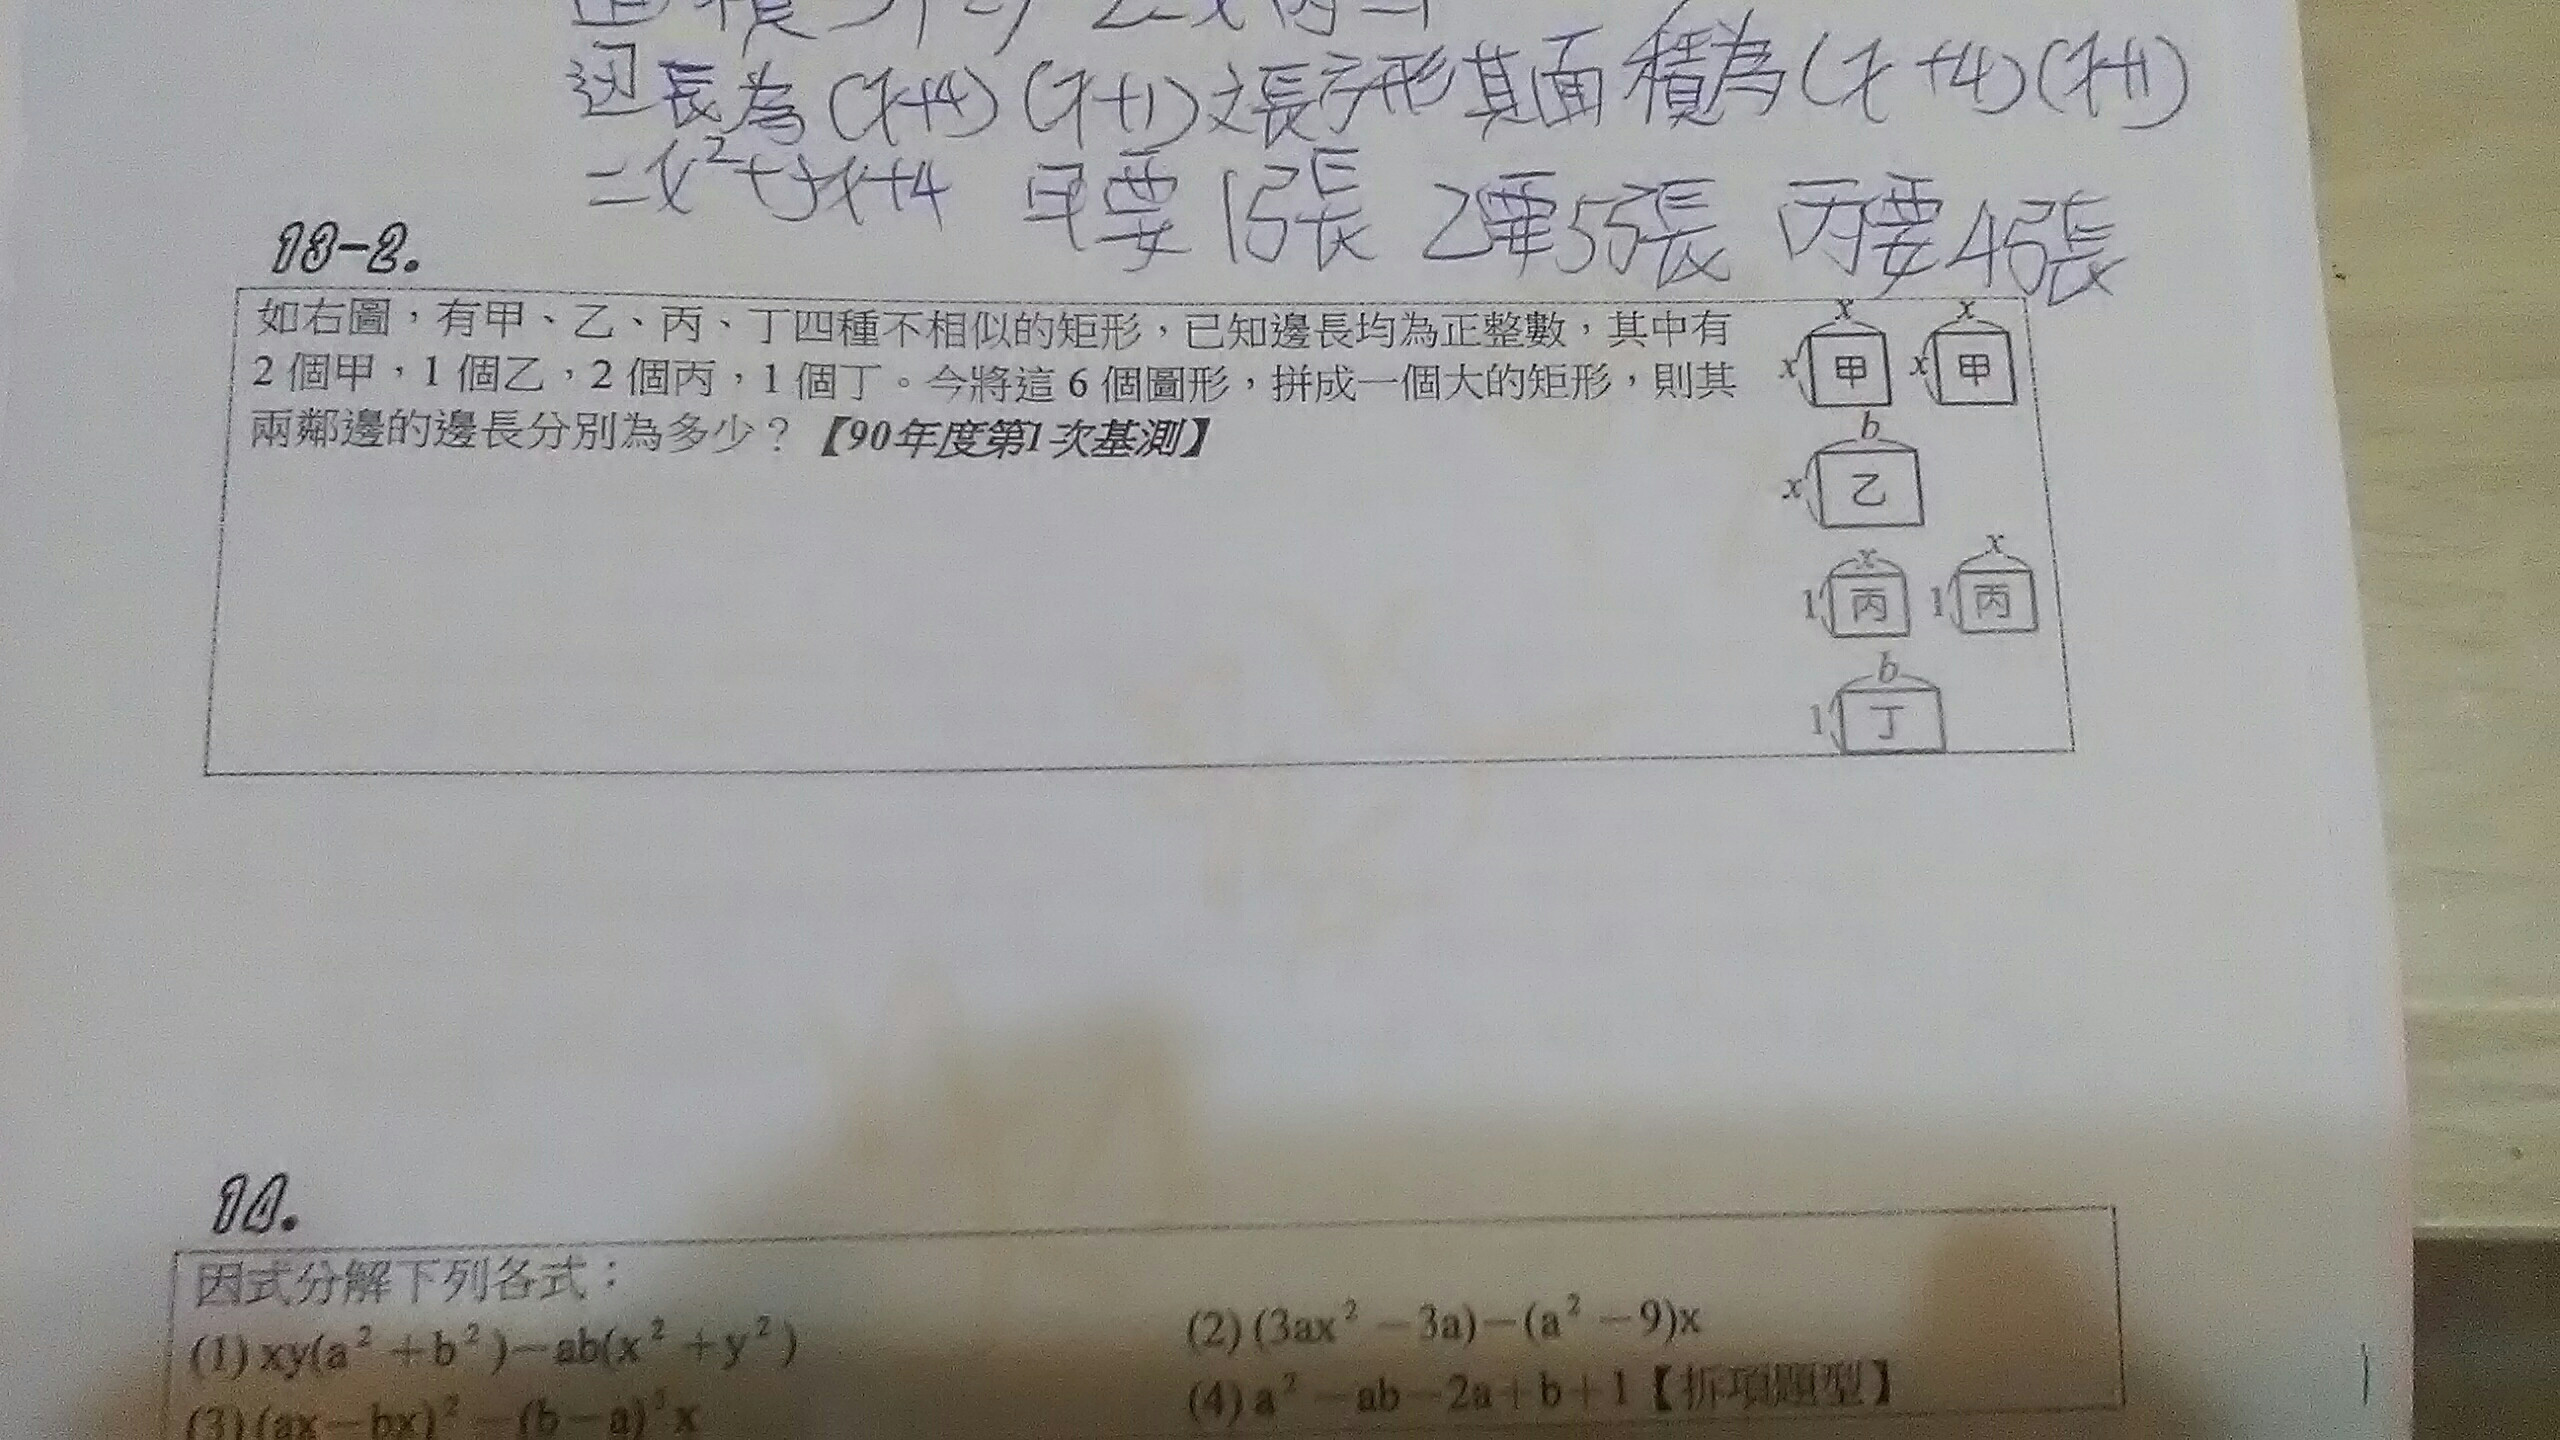 邊長為(x+4)(x+1)之長方形其面積為(x+4)(x+1)
=x²+5x+4 甲要1張 乙要5張 丙要4張
13-2.
如右圖,有甲、乙、丙、丁四種不相似的矩形,已知邊長均為正整數,其中有
2個甲,1個乙,2個丙,1個丁。今將這6個圖形,拼成一個大的矩形,則其
兩鄰邊的邊長分別為多少?【90年度第1次基測】
x x
x 甲 x 甲
b
x 乙
x x
1 丙 1 丙
b
1 丁
14.
因式分解下列各式:
(1) xy(a²+b²)-ab(x²+y²)
(2) (3ax²-3a)-(a²-9)x
(3) (ax-bx)²-(b-a)³x
(4) a²-ab-2a+b+1【拆項題型】